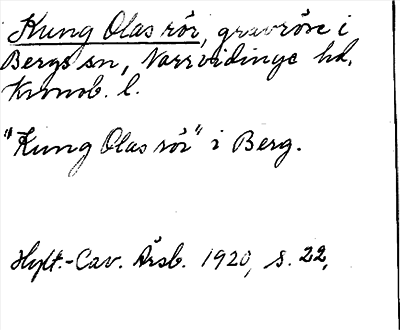 Kung Olas rör, gravröse i
Bergs sn, Norrvidinge hd,
Kronob. l.
"Kung Olas rör" i Berg.
Hylt.-Cav. Årsb. 1920, s. 22,